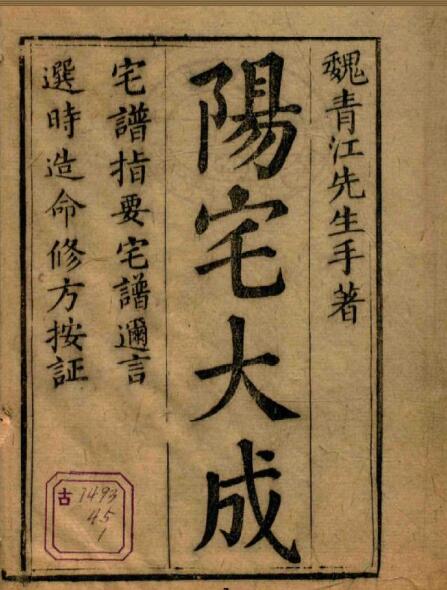 魏青江先生手著
陽宅大成
宅譜指要宅譜邇言
選時造命修方按証
古
1493
45
1